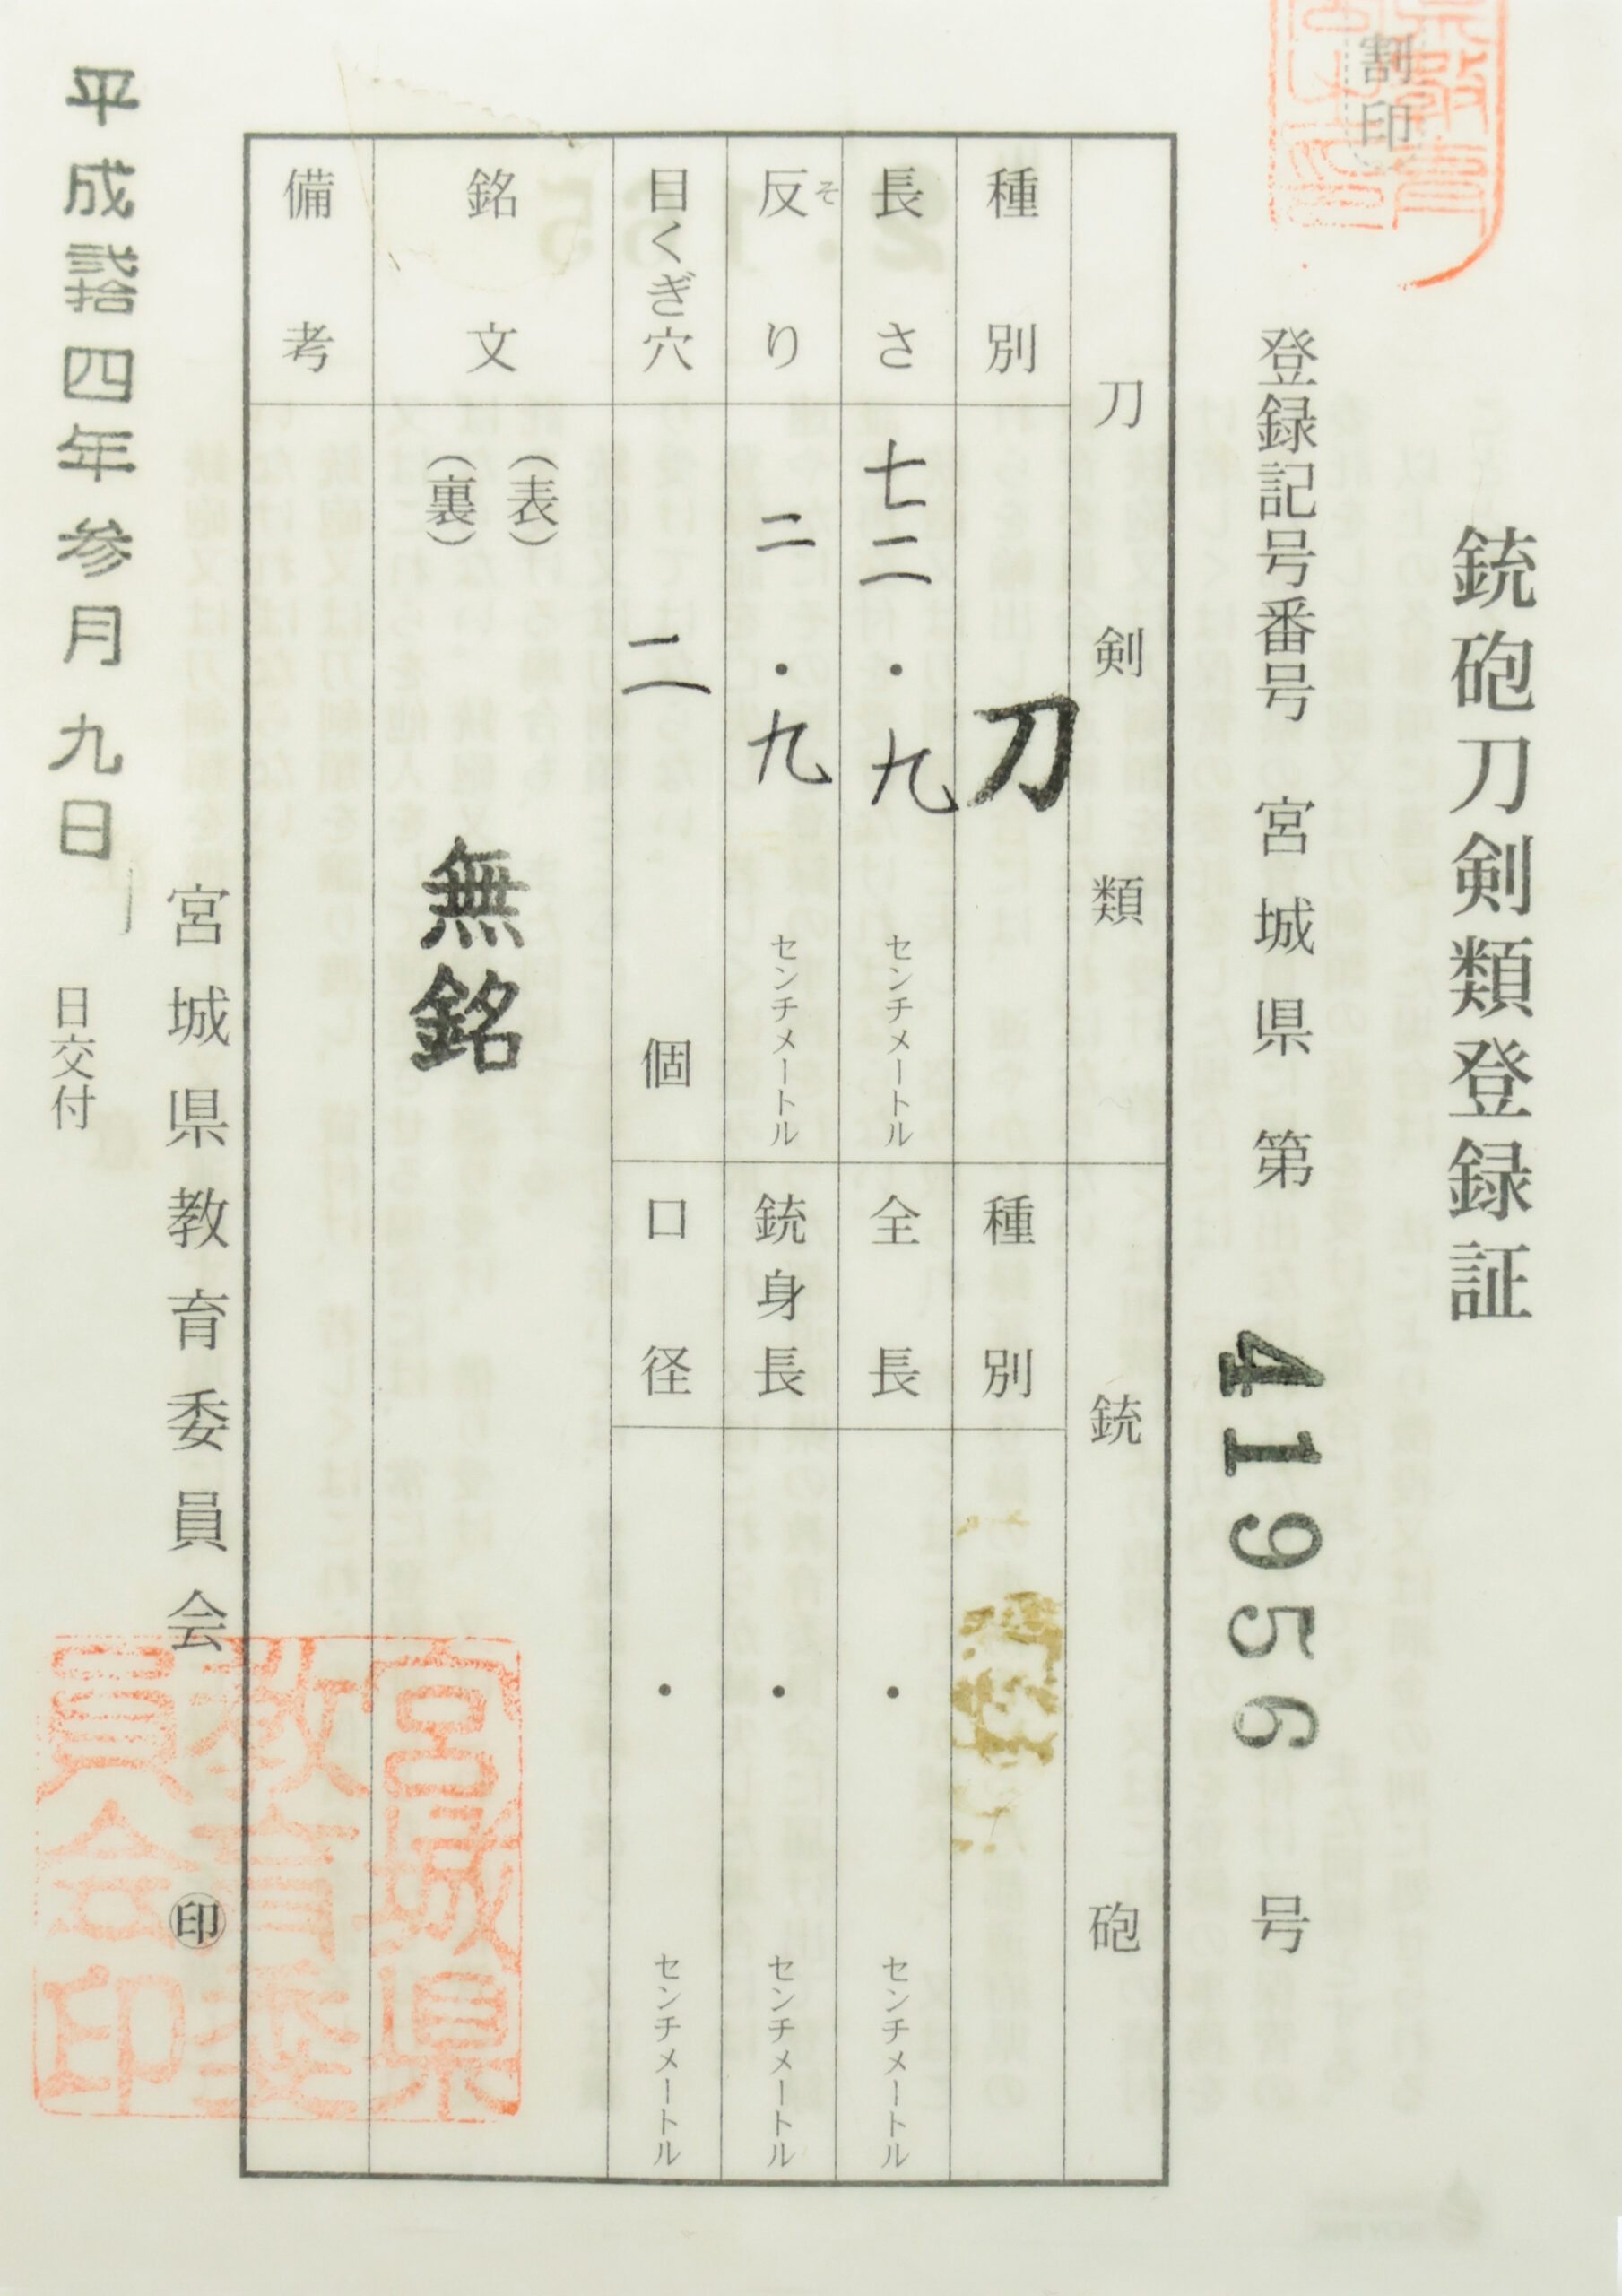 銃砲刀剣類登録証
割印
登録記号番号 宮城県 第 41956 号
刀剣類
種別 刀
長さ 七二・九 センチメートル
反り そ 二・九 センチメートル
目くぎ穴 二 個
銃砲
種別
全長 ・ センチメートル
銃身長 ・ センチメートル
口径 ・ センチメートル
銘文 (表)
(裏)
無銘
備考
宮城県教育委員会 印
宮城県
教育委
員会印
平成弐拾四年参月九日 日交付